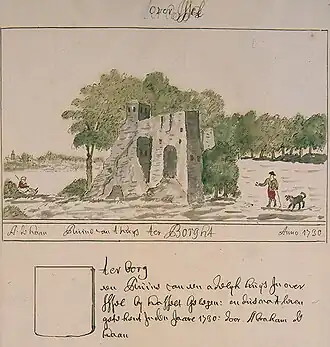 over Yssel
A: de Haan Ruine van t huys ter Borght Anno 1730
ter borg
een Ruine van een adelyk huys In over
Yssel by Hasselt gelegen: en dus naar t leven
geteekent In den Jaare 1730: door Abraham de
Haan